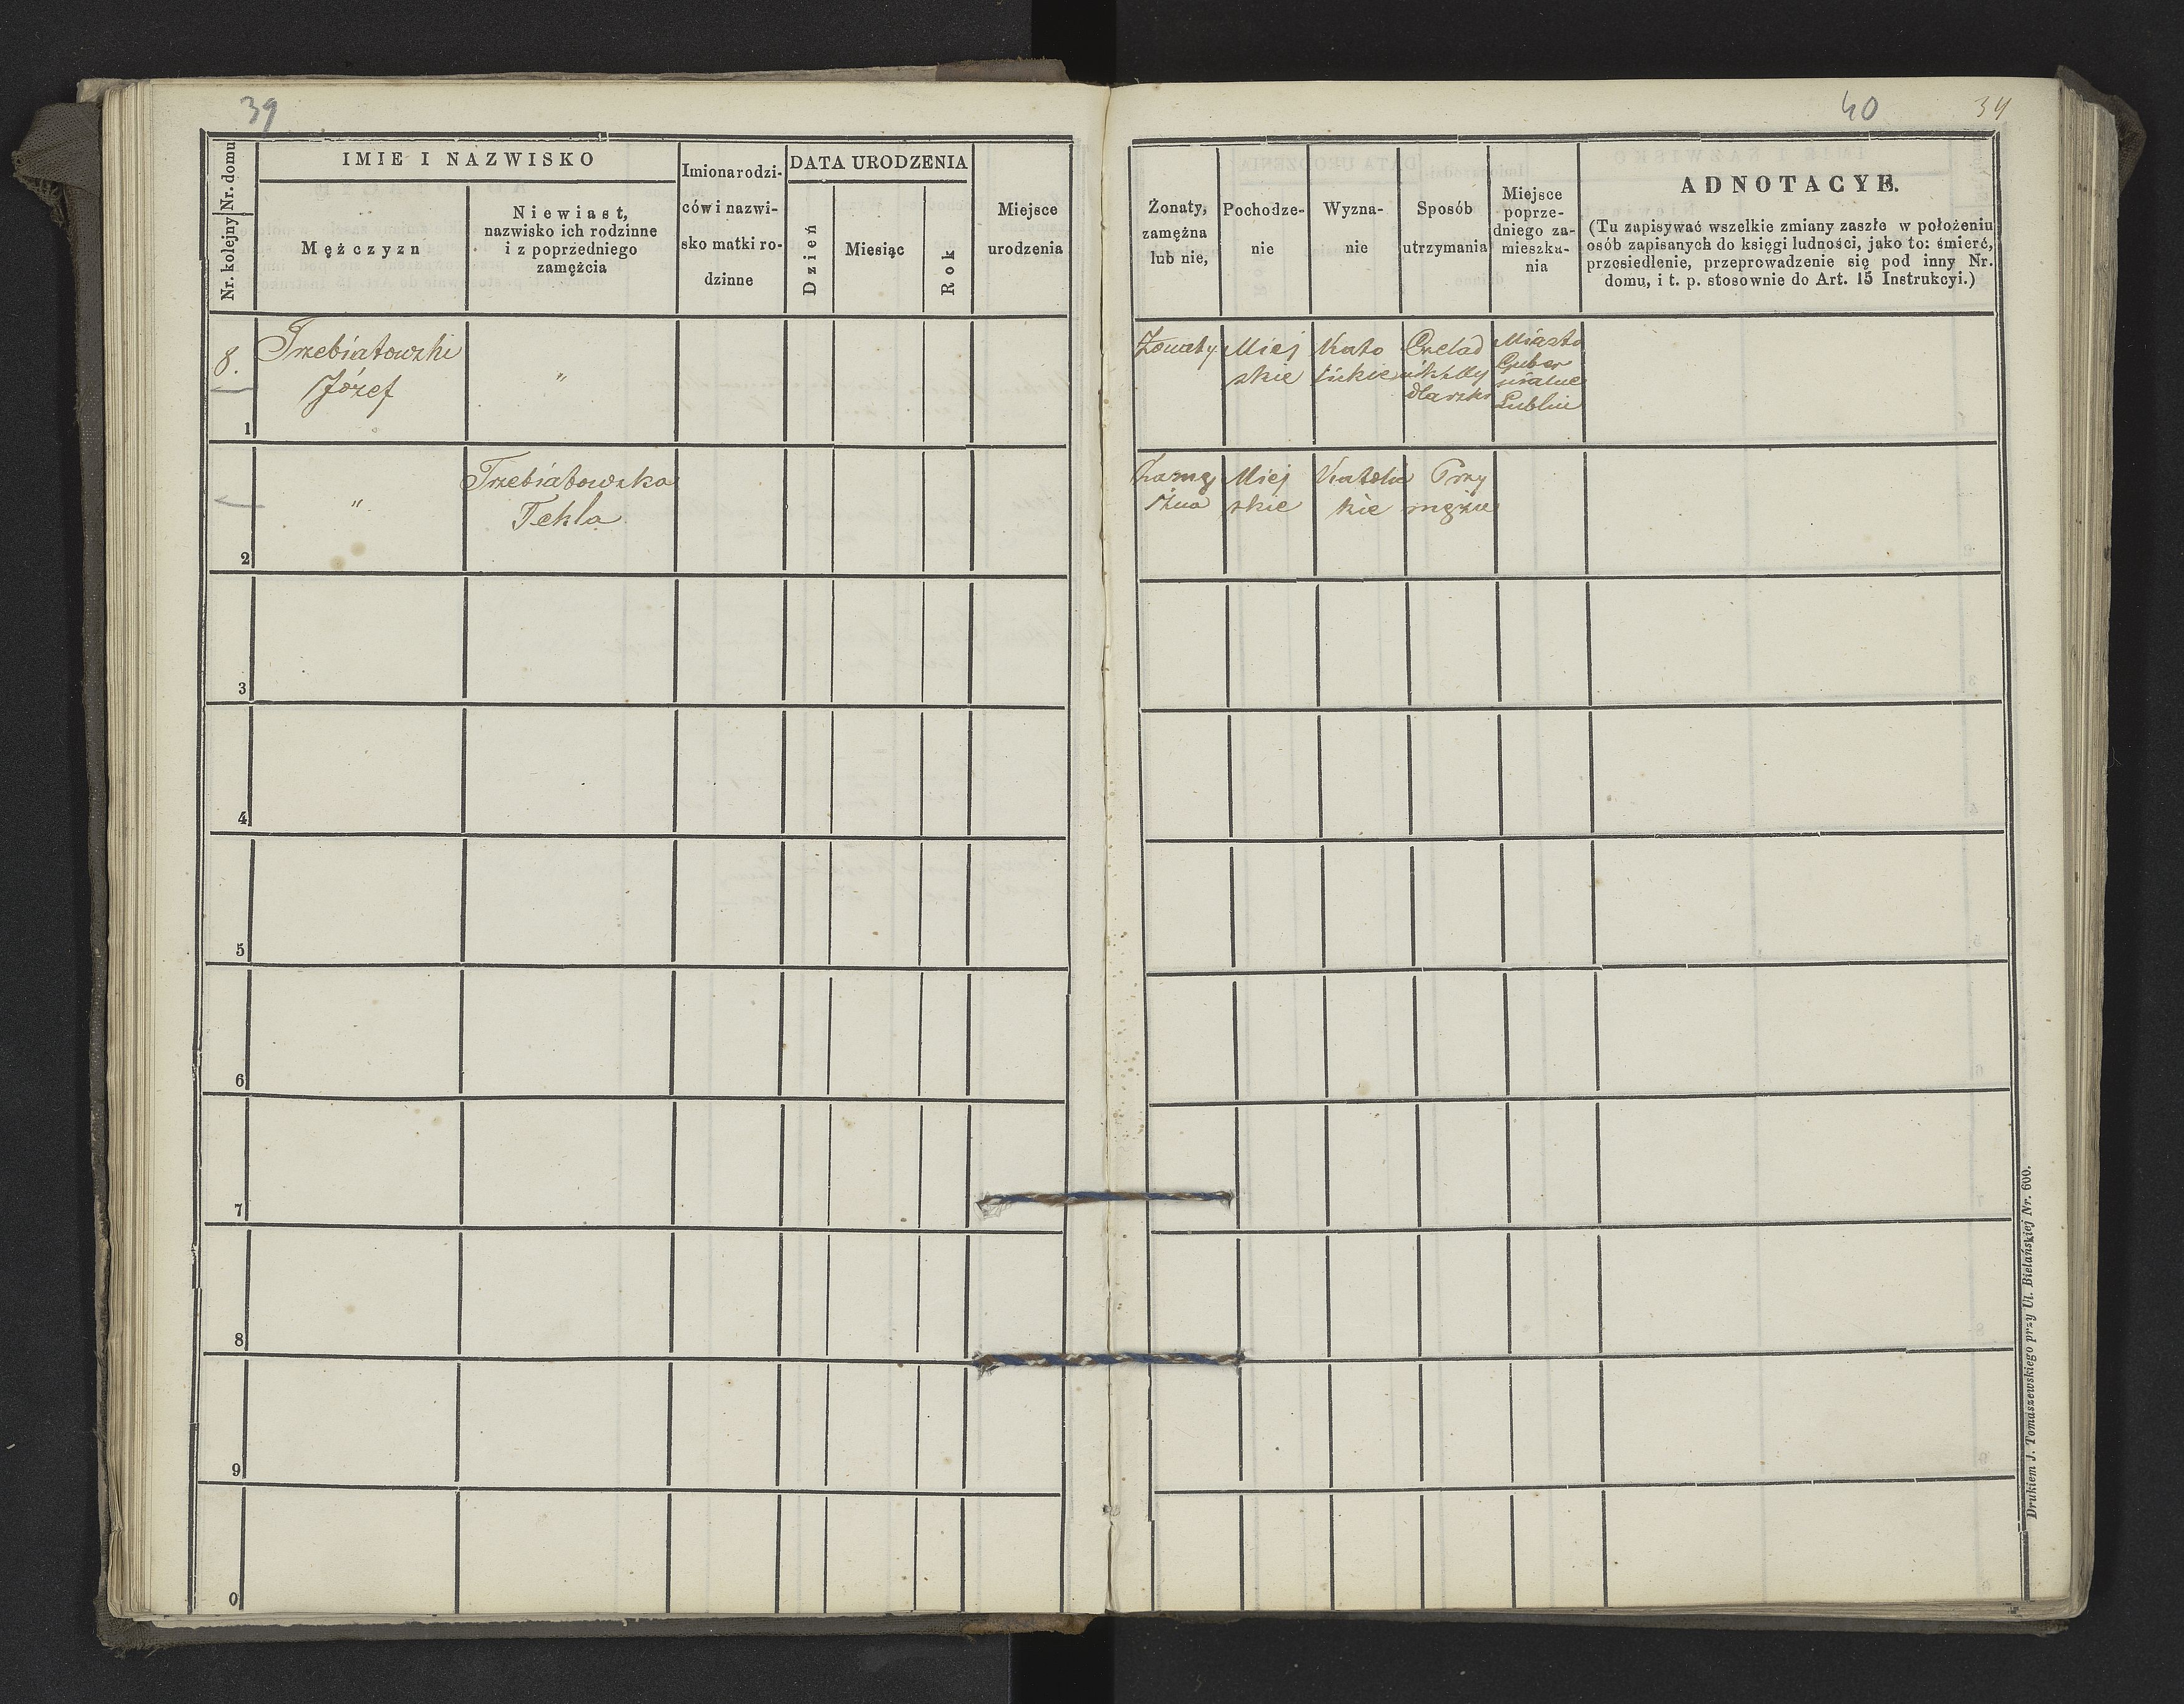 39
Nr. domu
Nr. kolejny
IMIE I NAZWISKO
Mężczyzn
Niewiast,
nazwisko ich rodzinne
i z poprzedniego
zamężcia
Imiona rodzi-
ców i nazwi-
sko matki ro-
dzinne
DATA URODZENIA
Dzień
Miesiąc
Rok
Miejsce
urodzenia
8.
1
Trzebiatowski
Józef
"
2
"
Trzebiatowska
Tekla
3
4
5
6
7
8
9
0
40
34
Żonaty,
zamężna
lub nie,
Pochodze-
nie
Wyzna-
nie
Sposób
utrzymania
Miejsce
poprze-
dniego za-
mieszka-
nia
ADNOTACYE.
(Tu zapisywać wszelkie zmiany zaszłe w położeniu
osób zapisanych do księgi ludności, jako to: śmierć,
przesiedlenie, przeprowadzenie się pod inny Nr.
domu, i t. p. stosownie do Art. 15 Instrukcyi.)
Żonaty
Miej
skie
Kato
lickie
Czelad
nik My
dlarski
Miasto
Guber
nialne
Lublin
Zamę
żna
Miej
skie
Katolic
kie
Przy
mężu
Drukiem J. Tomaszewskiego przy Ul. Bielańskiej Nr. 600.